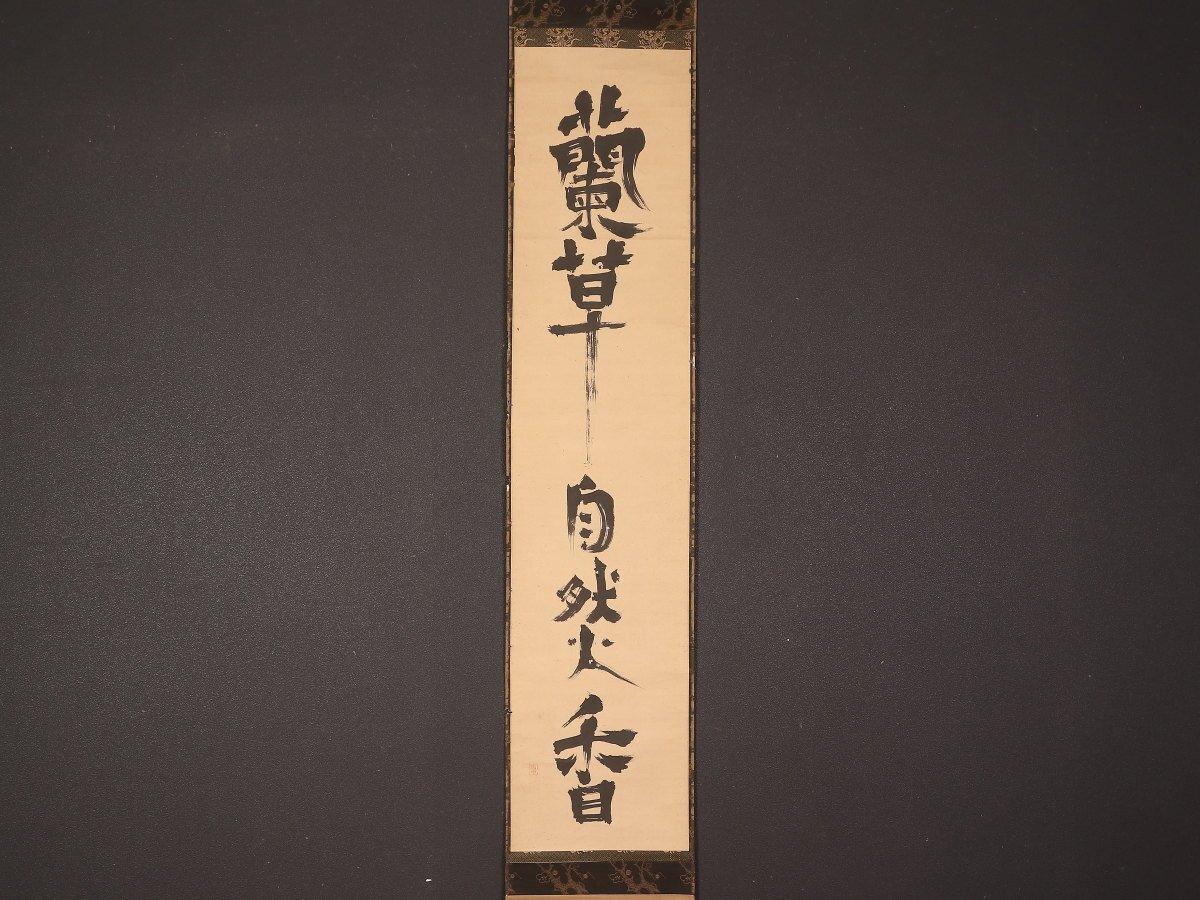 蘭草自然香